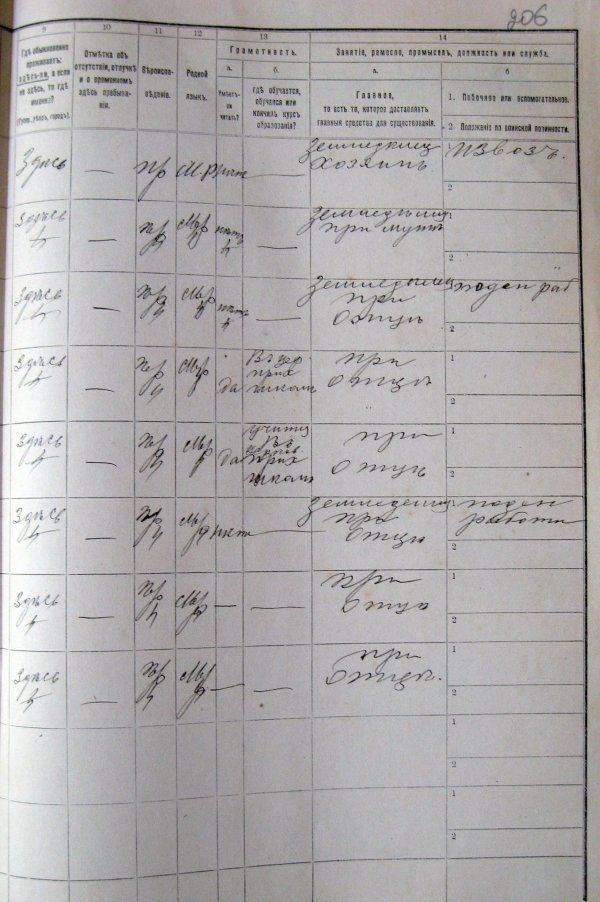 206
9
10
11
12
13
14
Гдѣ обыкновенно
проживаетъ:
здѣсь-ли, а если
не здѣсь, то гдѣ
именно?
(Губ., уѣздъ, городъ).
Отмѣтка объ
отсутствіи, отлучкѣ
и о временномъ
здѣсь пребыва-
ніи.
Вѣроиспо-
вѣданіе.
Родной
языкъ.
Грамотность.
а.
Умѣетъ-
ли
читать?
б.
гдѣ обучается,
обучался или
кончилъ курсъ
образованія?
Занятіе, ремесло, промыселъ, должность или служба.
а.
Главное,
то есть то, которое доставляетъ
главныя средства для существованія.
б
1. Побочное или вспомогательное.
2 Положеніе по воинской повинности.
Здѣсь — Пр М.Р —
Хозяинъ
извозъ.
2
Здѣсь — Пр Мр нѣтъ —
при мужѣ
2
Здѣсь — Пр Мр нѣтъ
при
Отцѣ
поден раб
2
Здѣсь — Пр Мр да
прих
школѣ
при
Отцѣ
1
2
Здѣсь — Пр Мр да
учится
прих
школѣ
при
Отцѣ
1
2
Здѣсь — Пр Мр нѣтъ —
при
Отцѣ
поден
работа
2
Здѣсь — Пр Мр — —
при
Отцѣ
1
2
Здѣсь — Пр Мр — —
при
Отцѣ.
1
2
1
2
1
2